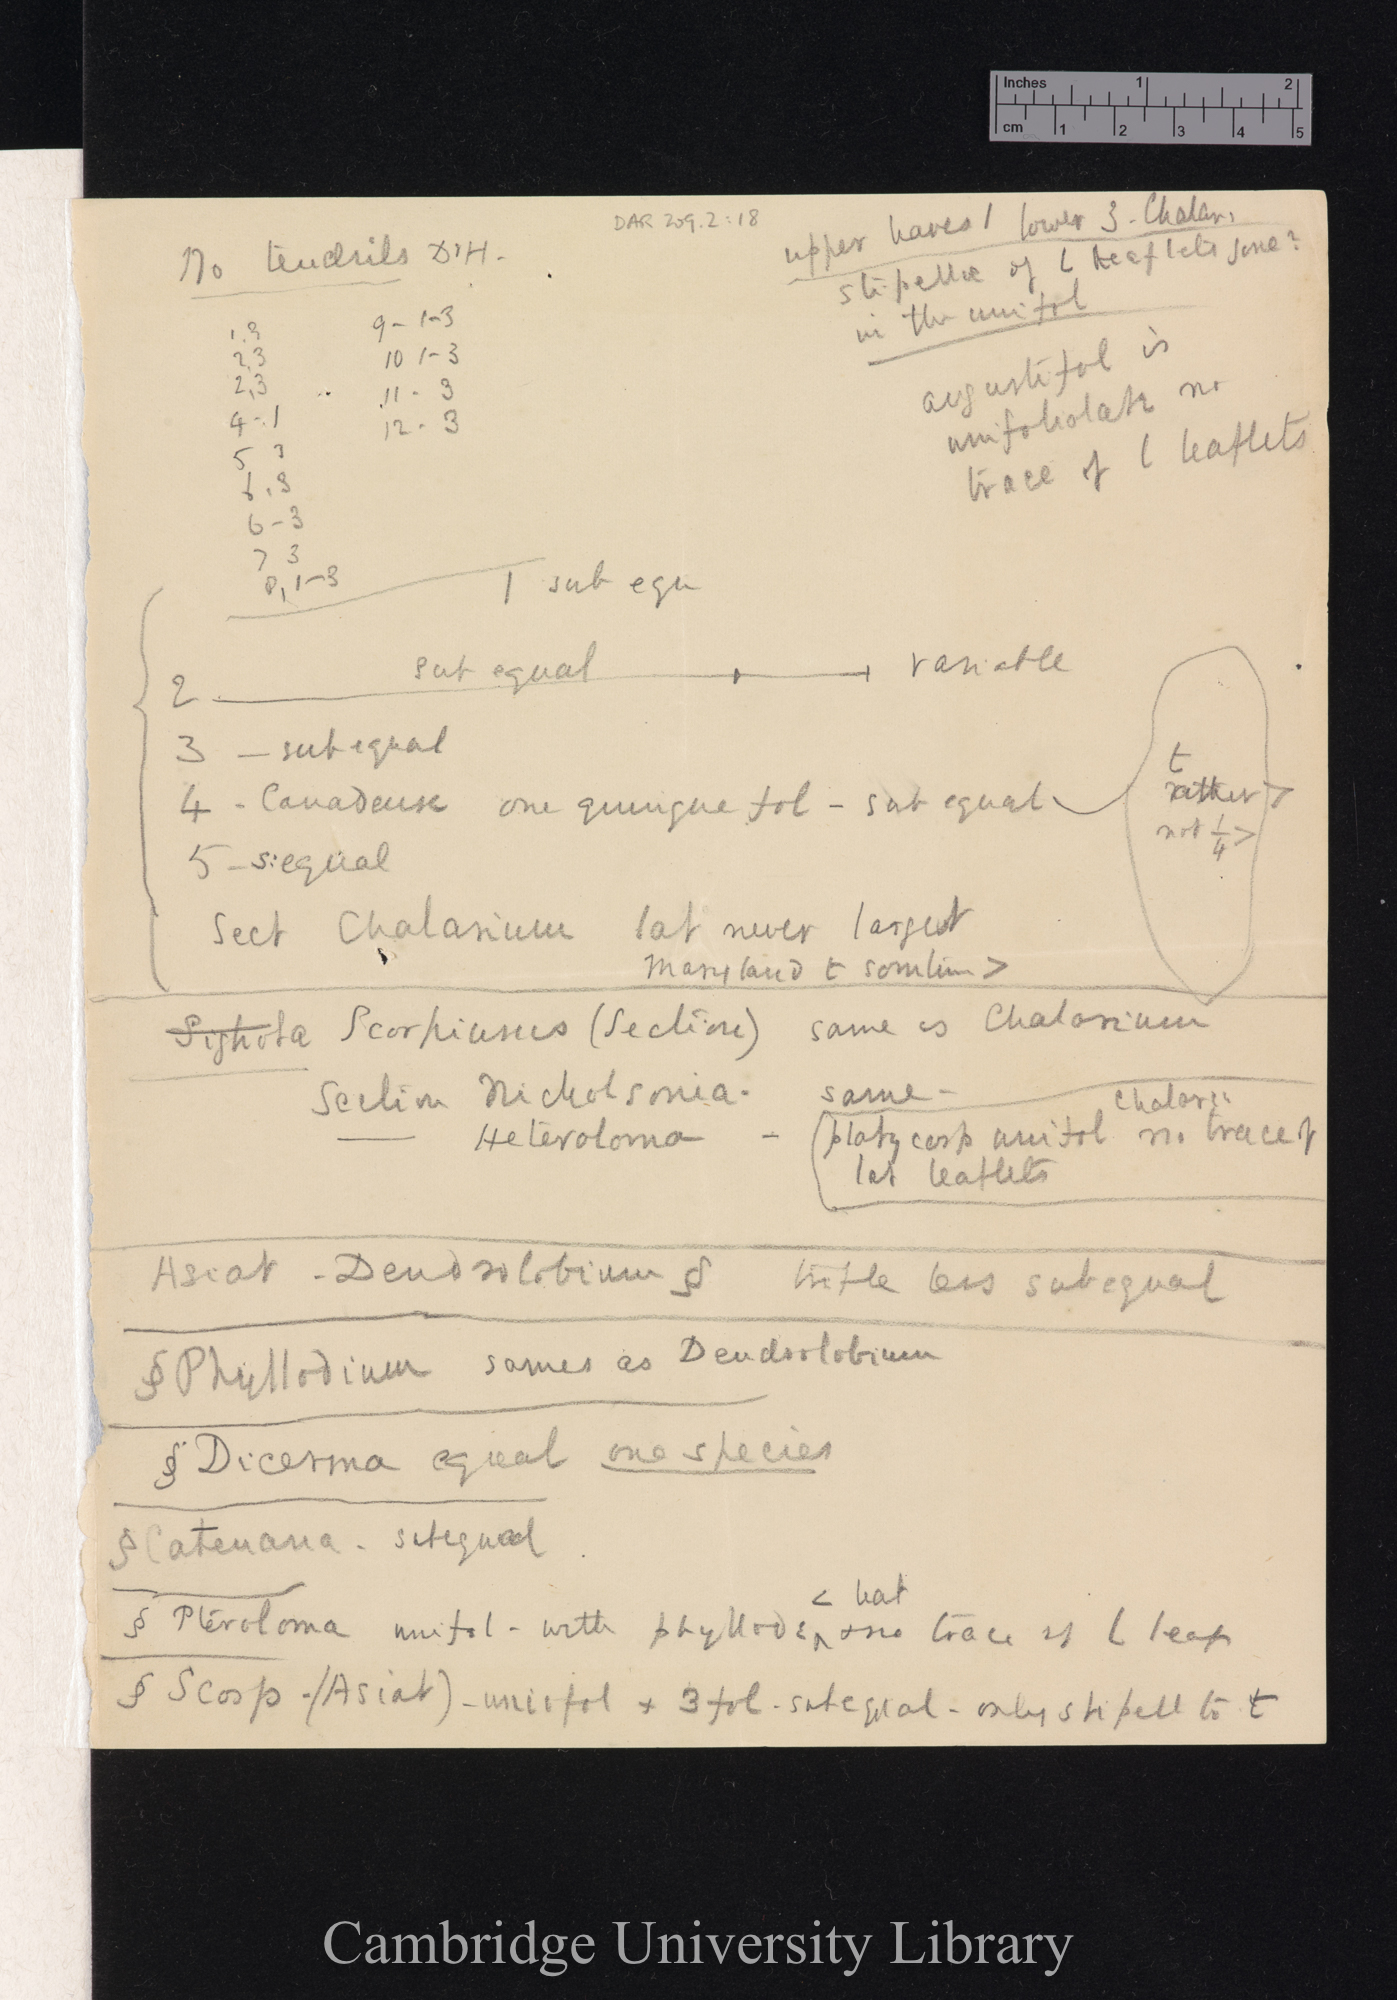 Inches 1 2
cm 1 2 3 4 5
DAR 209.2:18
No tendrils D'H.
upper leaves 1 lower 3 - Chalar.
stipellae of l leaflets gone?
in the unifol
angustifol is
unifoliolate no
trace of l leaflets
1.3
2,3
2,3
4-.1
5 3
6.3
6-3
7 3
8, 1-3
9- 1-3
10 1-3
11- 3
12- 3
1 sub equ
2 sub equal variable
3 - subequal
4 - Canadense one quinquefol - subequal
t
rather >
not 1/4 >
5 - s:equal
Sect Chalarium lat never largest
Maryland t somtim >
Scorpiurus (Section) same as Chalarium
Section Nicholsonia - same -
Heteroloma - (platycarp unifol no trace of
Chalari:
lat leaflets
Asiat - Dendrolobium § trifle less subequal
§ Phyllodium same as Dendrolobium
§ Dicerma equal one species
§ Catenaria - subequal
< leat
§ Pteroloma unifol - with phyllode no trace of l leaf
§ Scorp - (Asiat) - unifol + 3 fol - subequal - only stipell to t
Cambridge University Library